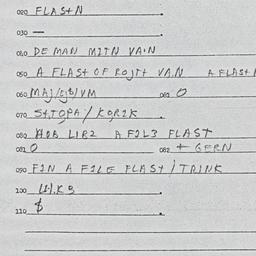 020 FLASTN
030 —
040 DE MAN MITN VAIN
050 A FLAST OF ROJTT VAN A FLAST
060 MAJ/GB/VM 061 O
070 STTOPA / KORIK
080 HOB LIR2 A FIL3 FLAST
081 O 082 + GERN
090 FIN A FILE FLAST / TRINK
100 W.KB
110 $